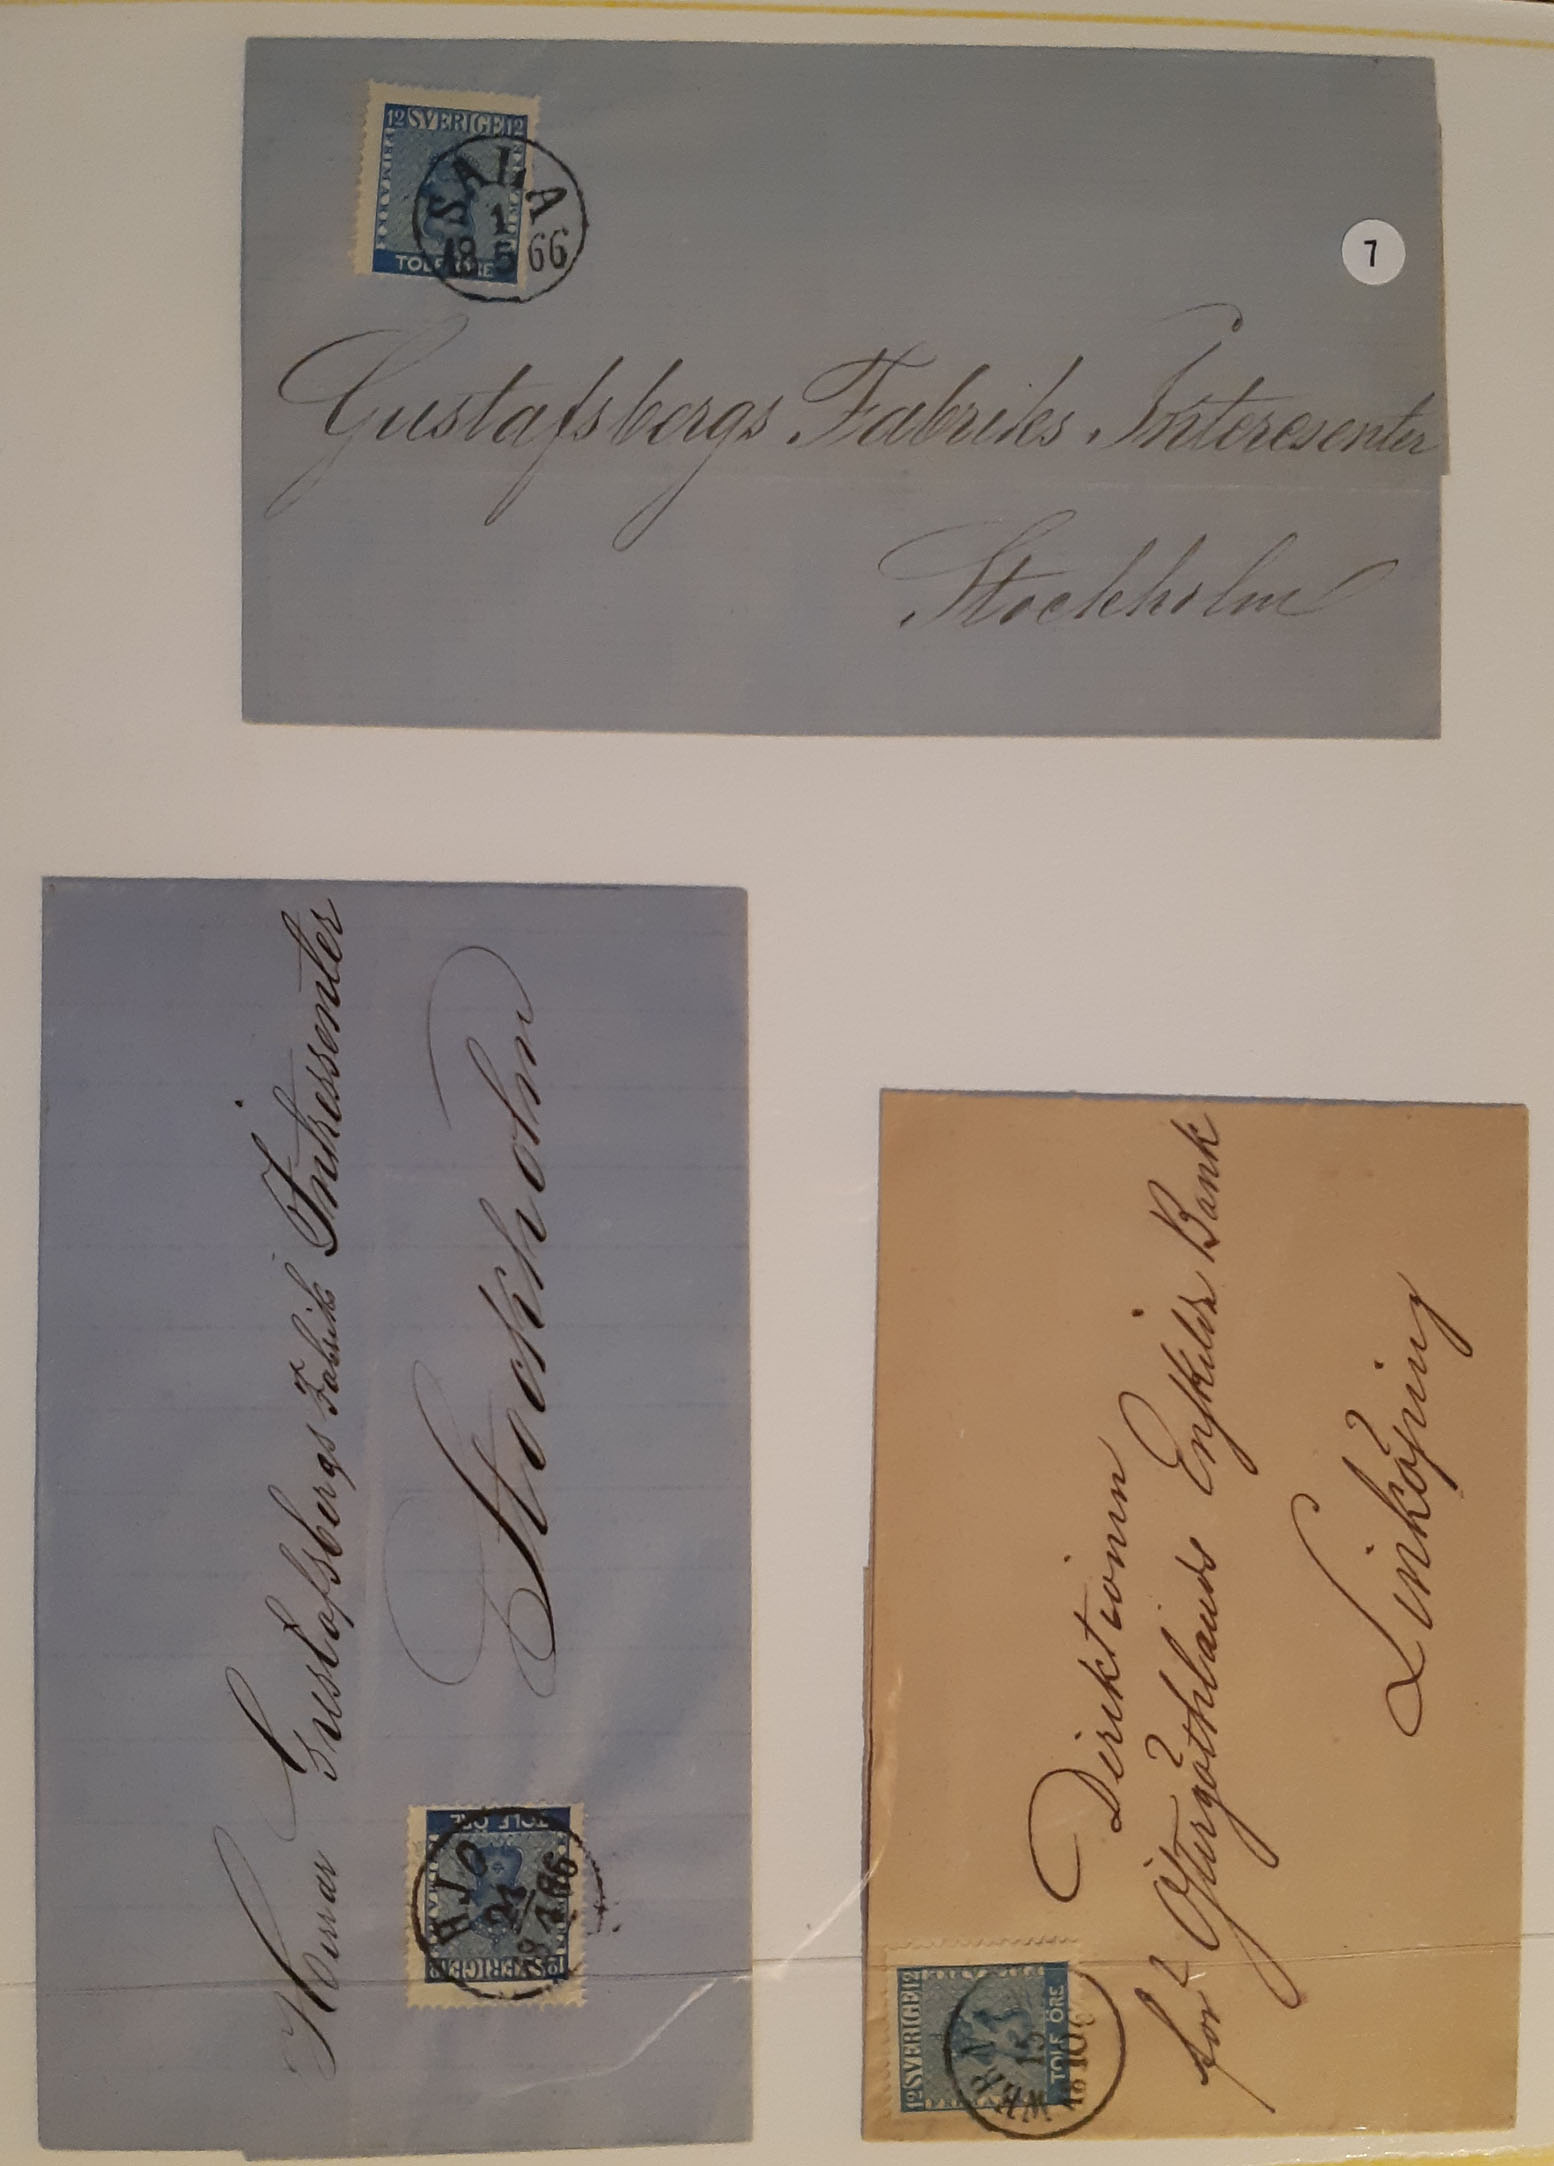 12 SVERIGE 12
FRIMÄRKE
TOLF ÖRE
SALA
1
18 5 66
7
Gustafsbergs Fabriks Interesenter
Stockholm
Herrar Gustafsbergs Fabriks Intressenter
Stockholm
12 SVERIGE 12
TOLF ÖRE
HJO
Direktionen
för Östergöthlands Enskilda Bank
Linköping
12 SVERIGE 12
TOLF ÖRE
15
18 10